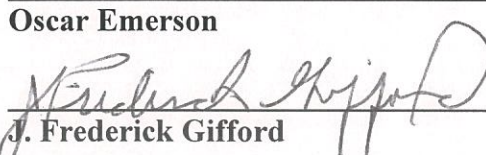 Oscar Emerson
J Frederick Gifford
J. Frederick Gifford